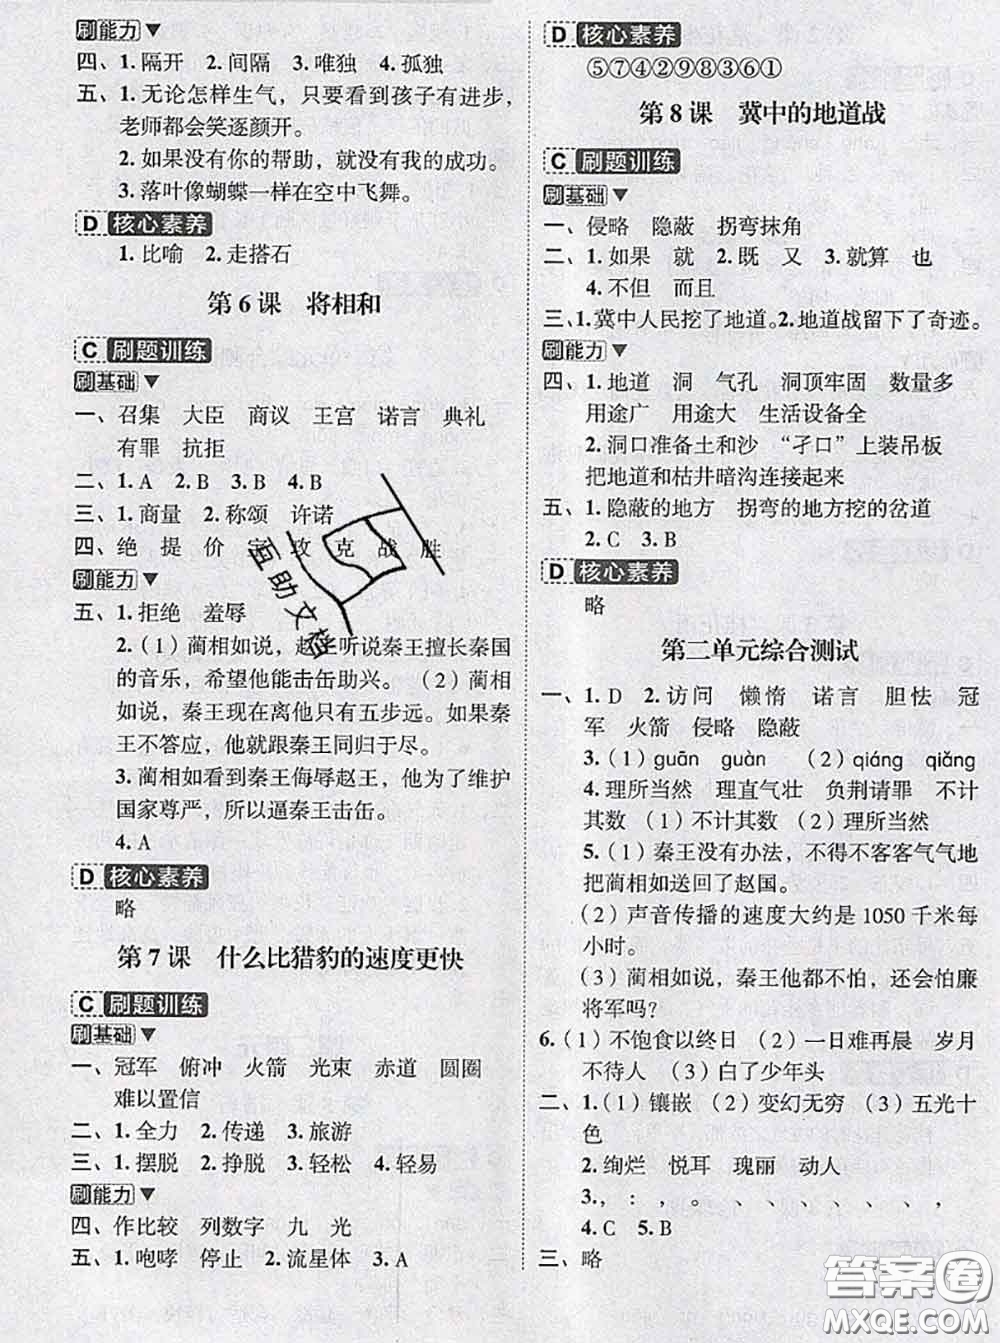 刷能力▼
四、1.隔开 2.间隔 3.唯独 4.孤独
五、1.无论怎样生气，只要看到孩子有进步，
老师都会笑逐颜开。
2.如果没有你的帮助，就没有我的成功。
3.落叶像蝴蝶一样在空中飞舞。
D 核心素养
1.比喻 2.走搭石
第6课 将相和
C 刷题训练
刷基础▼
一、召集 大臣 商议 王宫 诺言 典礼
有罪 抗拒
二、1.A 2.B 3.B 4.B
三、1.商量 2.称颂 许诺
四、绝 提 价 宝 攻 克 战 胜
刷能力▼
五、1.拒绝 羞辱
2.（1）蔺相如说，赵王听说秦王擅长秦国
的音乐，希望他能击缶助兴。（2）蔺相
如说，秦王现在离他只有五步远。如果秦
王不答应，他就跟秦王同归于尽。
3.蔺相如看到秦王侮辱赵王，他为了维护
国家尊严，所以逼秦王击缶。
4.A
D 核心素养
略
第7课 什么比猎豹的速度更快
C 刷题训练
刷基础▼
一、冠军 俯冲 火箭 光束 赤道 圆圈
难以置信
二、1.全力 2.传递 3.旅游
三、1.摆脱 2.挣脱 3.轻松 4.轻易
刷能力▼
四、作比较 列数字 九 光
五、1.咆哮 停止 2.流星体 3.A
D 核心素养
⑤⑦④②⑨⑧③⑥①
第8课 冀中的地道战
C 刷题训练
刷基础▼
一、侵略 隐蔽 拐弯抹角
二、1.如果 就 2.既 又 3.就算 也
4.不但 而且
三、1.冀中人民挖了地道。2.地道战留下了奇迹。
刷能力▼
四、1.地道 洞 气孔 洞顶牢固 数量多
用途广 用途大 生活设备全
2.洞口准备土和沙 “孑口”上装吊板
把地道和枯井暗沟连接起来
五、1.隐蔽的地方 拐弯的地方挖的岔道
2.C 3.B
D 核心素养
略
第二单元综合测试
一、1.D 2.访问 懒惰 诺言 胆怯 冠
军 火箭 侵略 隐蔽
3.（1）guān guàn （2）qiáng qiǎng
4.理所当然 理直气壮 负荆请罪 不计
其数（1）不计其数（2）理所当然
5.（1）秦王没有办法，不得不客客气气地
把蔺相如送回了赵国。
（2）声音传播的速度大约是1050千米每
小时。
（3）蔺相如说，秦王他都不怕，还会怕廉
将军吗？
6.（1）不饱食以终日（2）一日难再晨 岁月
不待人（3）白了少年头
二、1.（1）镶嵌（2）变幻无穷（3）五光十
色
2.绚烂 悦耳 瑰丽 动人
3.，：，。、、、、、、、
4.C 5.B
三、略
互助文档
答案圈
MXQE.COM